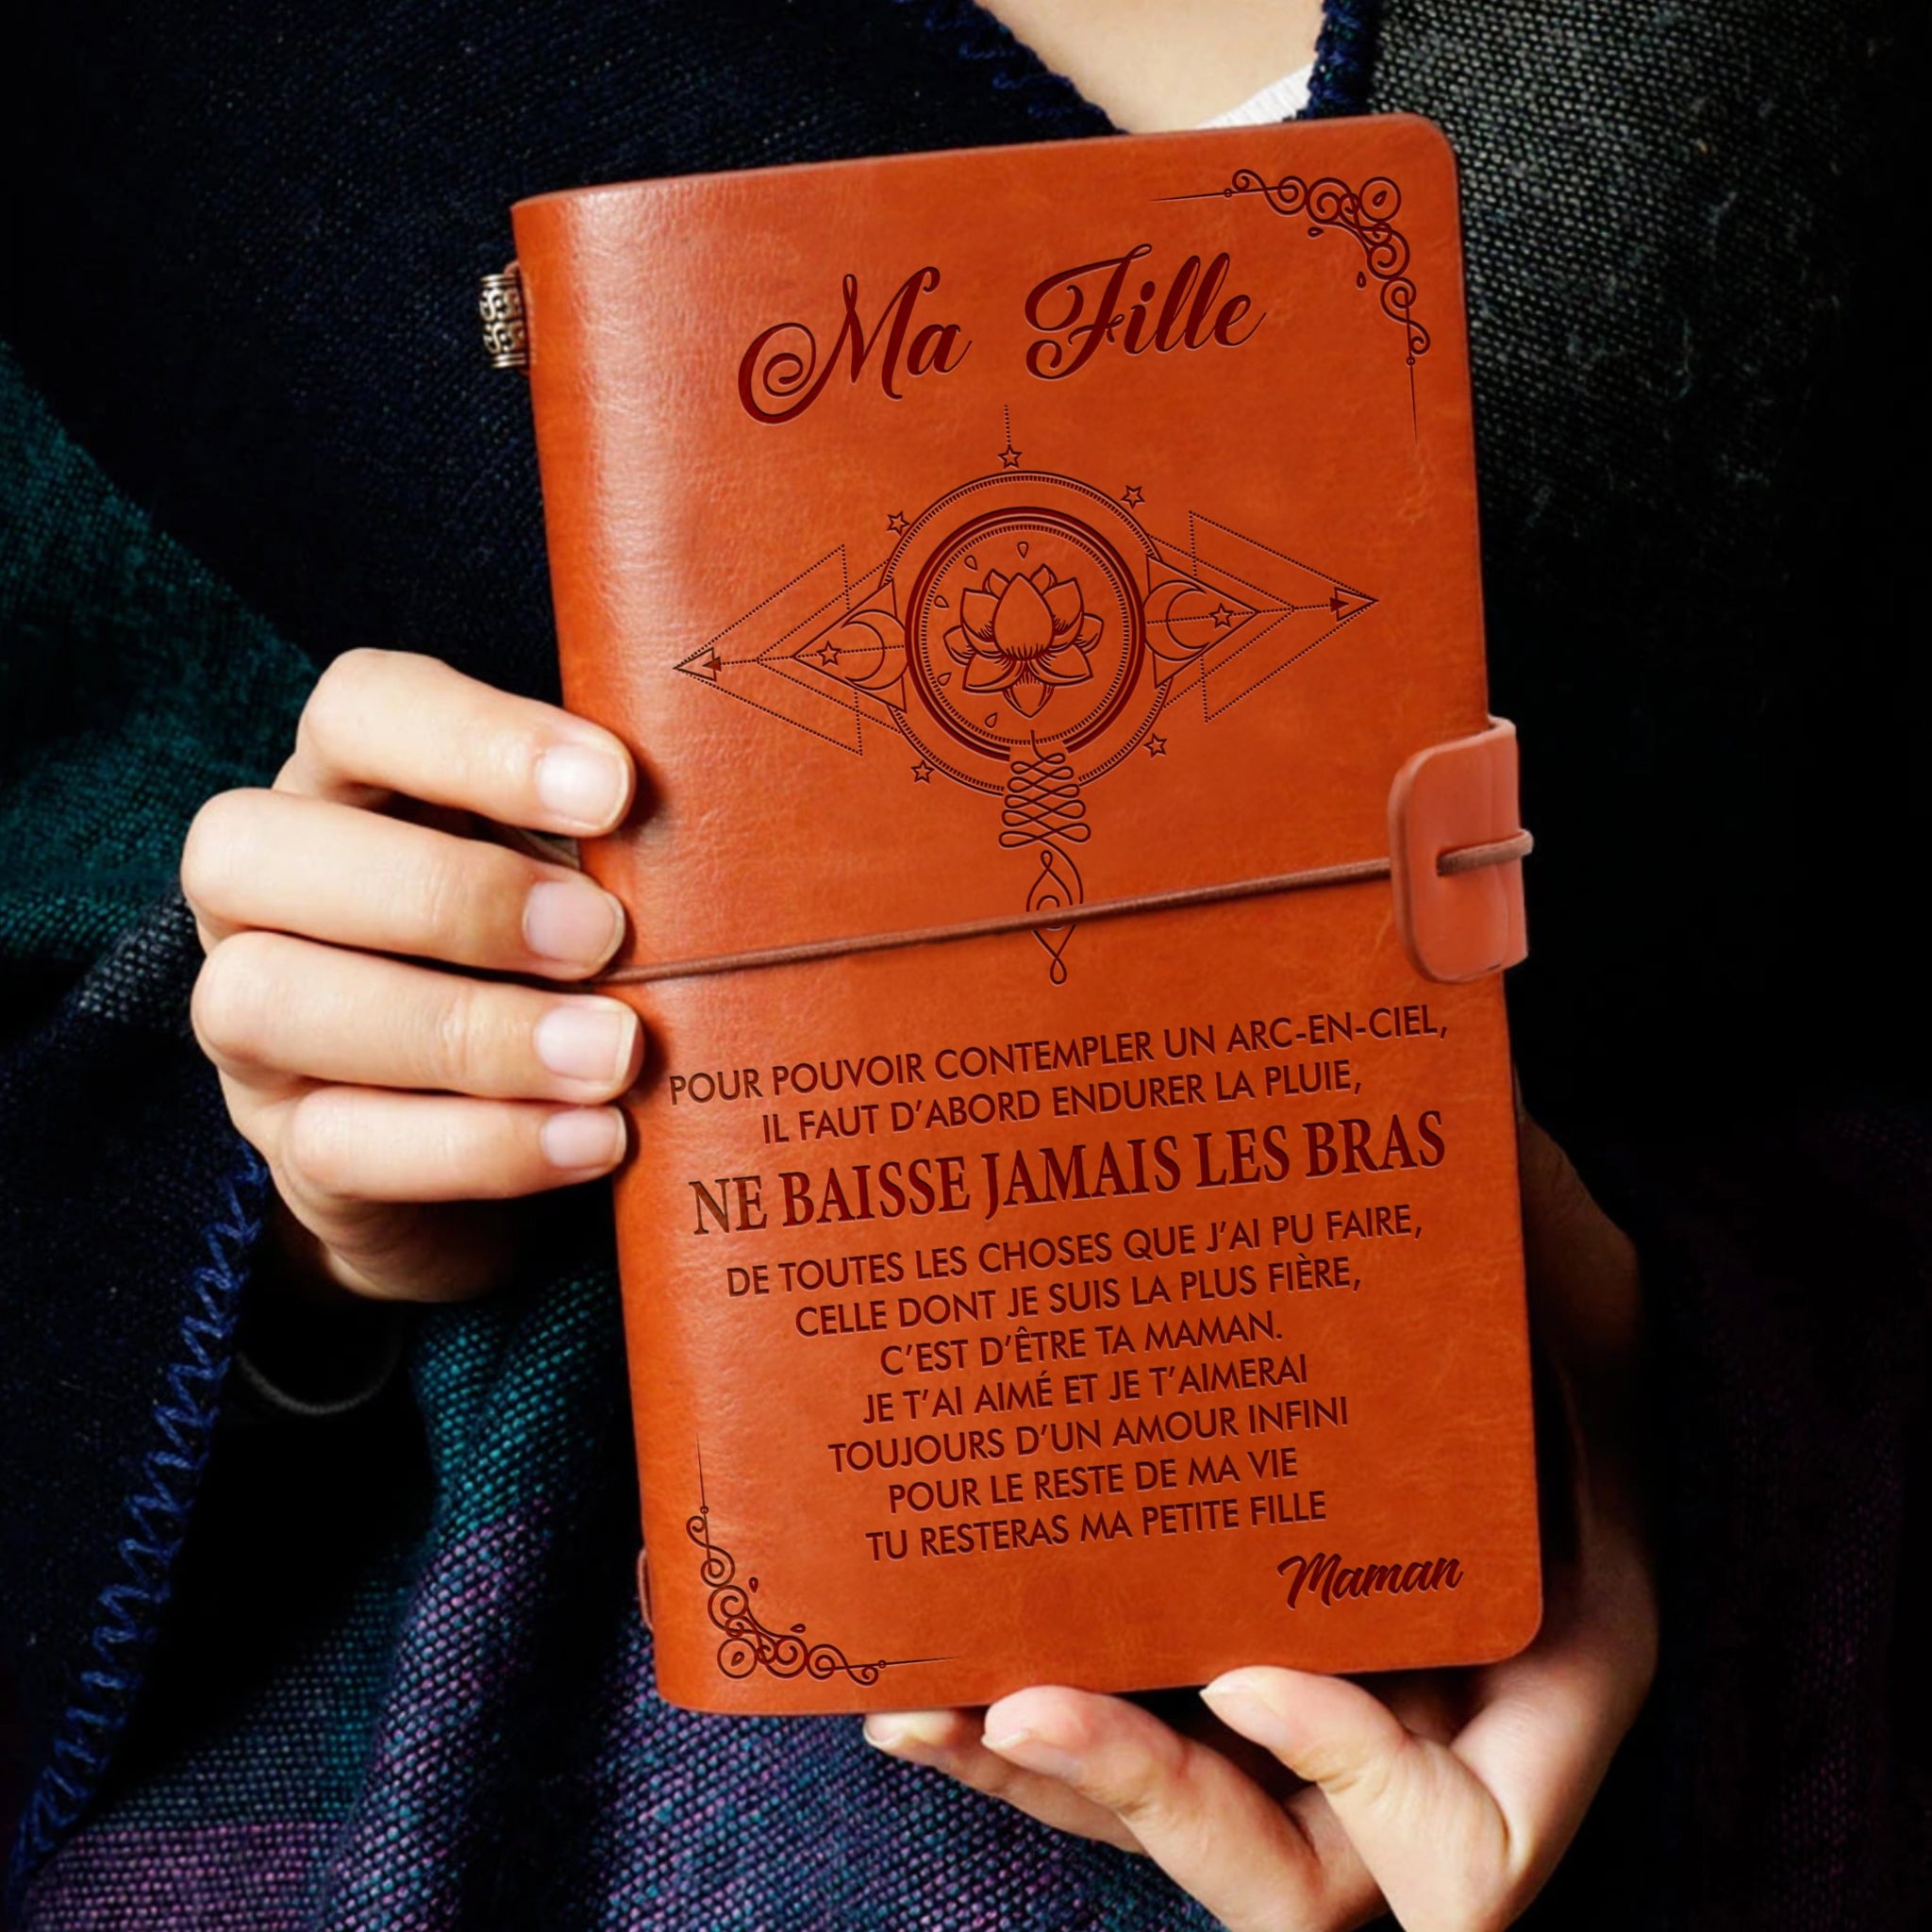 Ma Fille
POUR POUVOIR CONTEMPLER UN ARC-EN-CIEL,
IL FAUT D'ABORD ENDURER LA PLUIE,
NE BAISSE JAMAIS LES BRAS
DE TOUTES LES CHOSES QUE J'AI PU FAIRE,
CELLE DONT JE SUIS LA PLUS FIÈRE,
C'EST D'ÊTRE TA MAMAN.
JE T'AI AIMÉ ET JE T'AIMERAI
TOUJOURS D'UN AMOUR INFINI
POUR LE RESTE DE MA VIE
TU RESTERAS MA PETITE FILLE
Maman